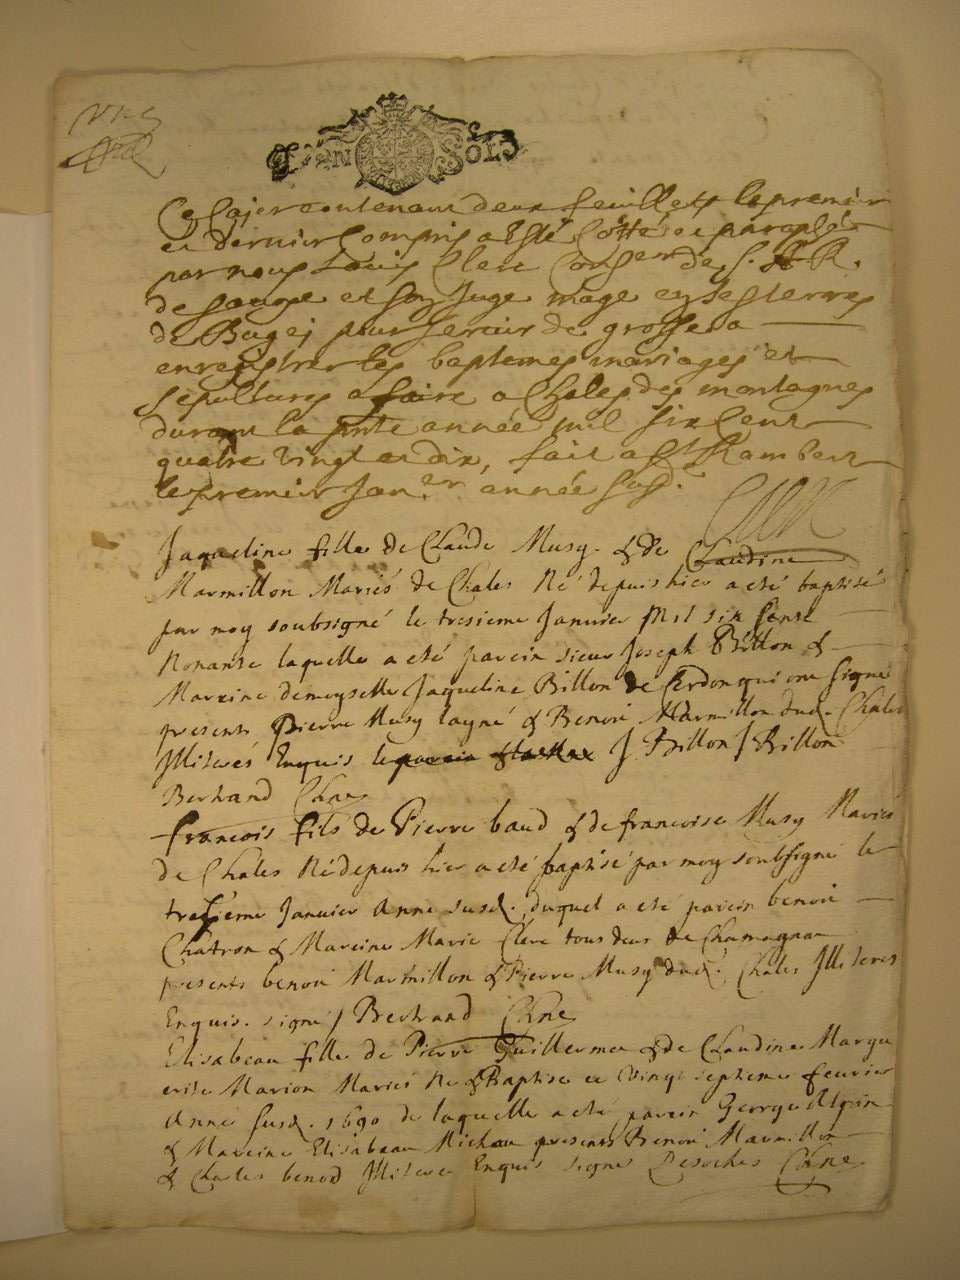 Ce Cajer contenant deux feuillets le premier
et dernier compris a Esté Cotté et paraphé
par nous Louis Clerc Conser de S. A R.
de savoye et son Juge mage en ses terres
de Bugej pour servir de grosse a
enregistrer les baptemes mariages et
sepultures a faire a Chales des montagnes
durant la pnte année mil six Cent
quatre vingt et dix, fait a St Rambert
le premier Janer année susd.
Jaqueline fille de Claude Musy & de Claudine
Marmillon Mariés de Chales Né depuis hier a eté baptisé
par moy soubsigné le tresieme Janvier Mil six Cents
Nonante laquelle a eté parein sieur Joseph Billon &
Mareine demoyselle Jaqueline Billon de Cerdon qui ont signé
presents Pierre Musy layné & Benoi Marmillon dud. Chales
Illiterés Enquis J. Billon J Billon
Bertrand
francois fils de Pierre baud & de francoise Musy Mariés
de Chales Né depuis hier a eté baptisé par moy soubsigné le
tresieme Janvier Anne susd. duquel a eté parein benoi
Chatron & Mareine Marie Clerc tous deux de
presents benoi Marmillon & Pierre Musy dud. Chales Illiteres
Enquis. signé / Bertrand
Elisabeau fille de Pierre Guillermet & de Claudine Margu
erite Marion Mariés Né & Baptisé ce Vingt septieme feuvrier
Anne susd. 1690 de laquelle a eté parein George
& Mareine Elisabeau Michau presents Benoi Marmillon
& Charles benod Illiteré Enquis signé